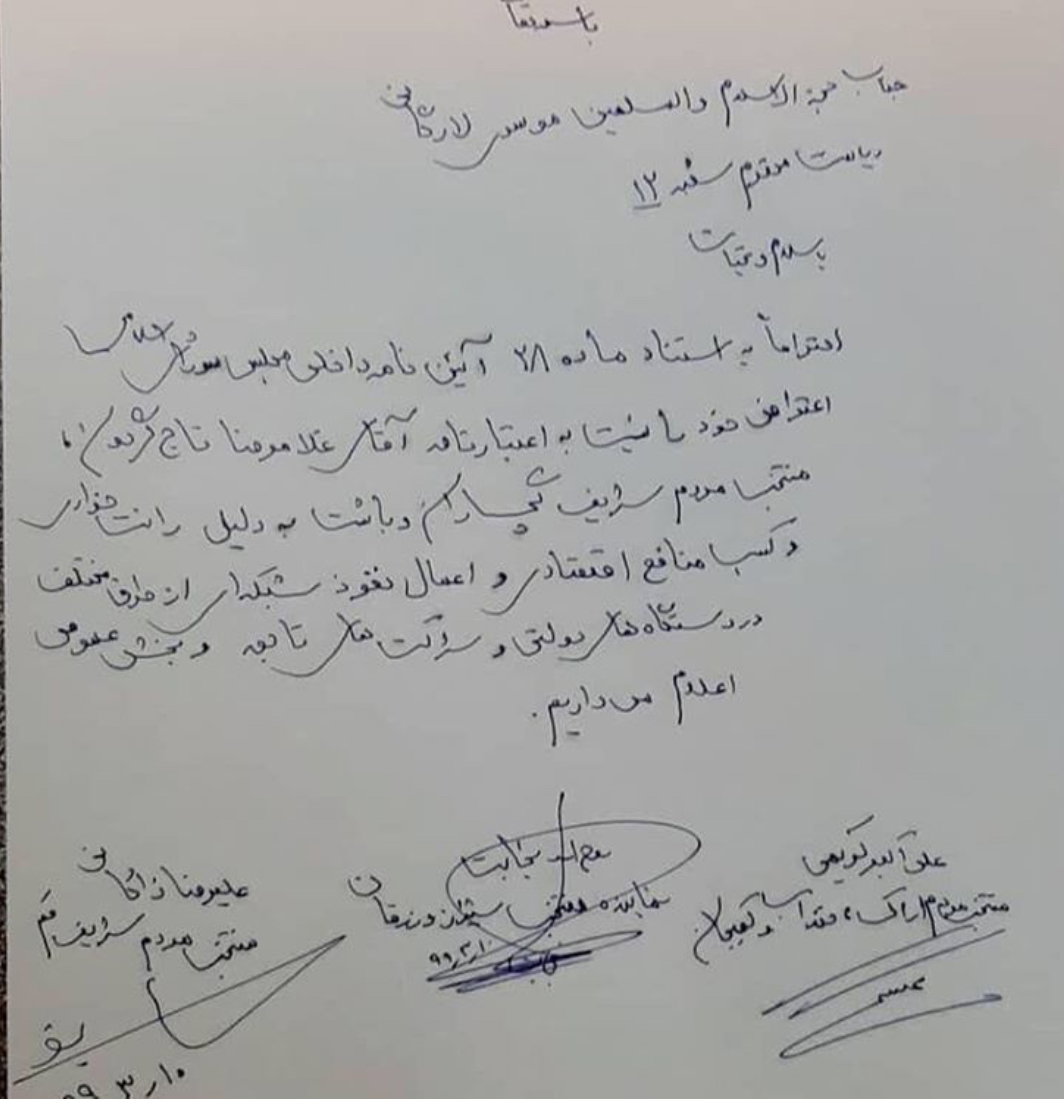 باسمه تعالی
جناب حجة الاسلام والمسلمین موسوی لارگانی
ریاست محترم شعبه ۱۲
باسلام و تحیات
احتراماً به استناد ماده ۲۸ آئین نامه داخلی مجلس شورای اسلامی
اعتراض خود را نسبت به اعتبارنامه آقای غلامرضا تاجگردون،
منتخب مردم شریف گچساران و باشت به دلیل رانت خواری
و کسب منافع اقتصادی و اعمال نفوذ شبکه‌ای از طرق مختلف
در دستگاه های دولتی و شرکت های تابعه و بخش عمومی
اعلام می داریم.
علی اکبر کریمی
منتخب مردم اراک، خنداب و کمیجان
روح اله نجابت
نماینده منتخب شیراز و زرقان
۹۹/۳/۱۰
علیرضا زاکانی
منتخب مردم شریف قم
۹۹/۳/۱۰